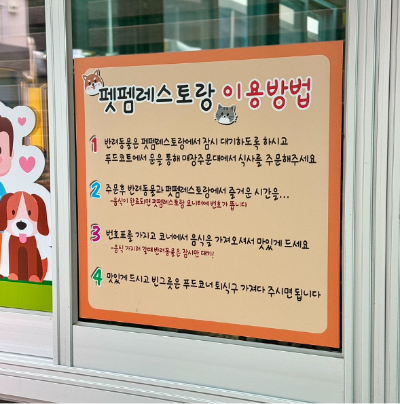 펫팸레스토랑 이용방법
1 반려동물은 펫팸레스토랑에서 잠시 대기하도록 하시고
푸드코트에서 문을 통해 매장주문대에서 식사를 주문해주세요
2 주문후 반려동물과 펫팸레스토랑에서 즐거운 시간을...
-음식이 완료되면 펫팸레스토랑 모니터에 번호가 뜹니다
3 번호표를 가지고 코너에서 음식을 가져오셔서 맛있게 드세요
-음식 가지러 갈때 반려동물은 잠시만 대기!
4 맛있게 드시고 빈그릇은 푸드코너 퇴식구 가져다 주시면 됩니다